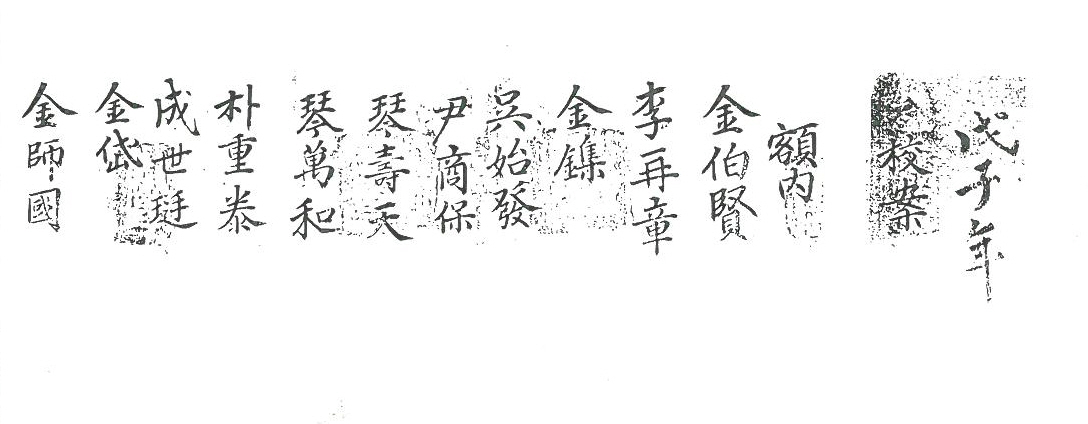 戊子年
校案
額內
金伯賢
李再章
金鏶
吳始發
尹商保
琴壽天
琴萬和
朴重泰
成世珽
金岱
金師國